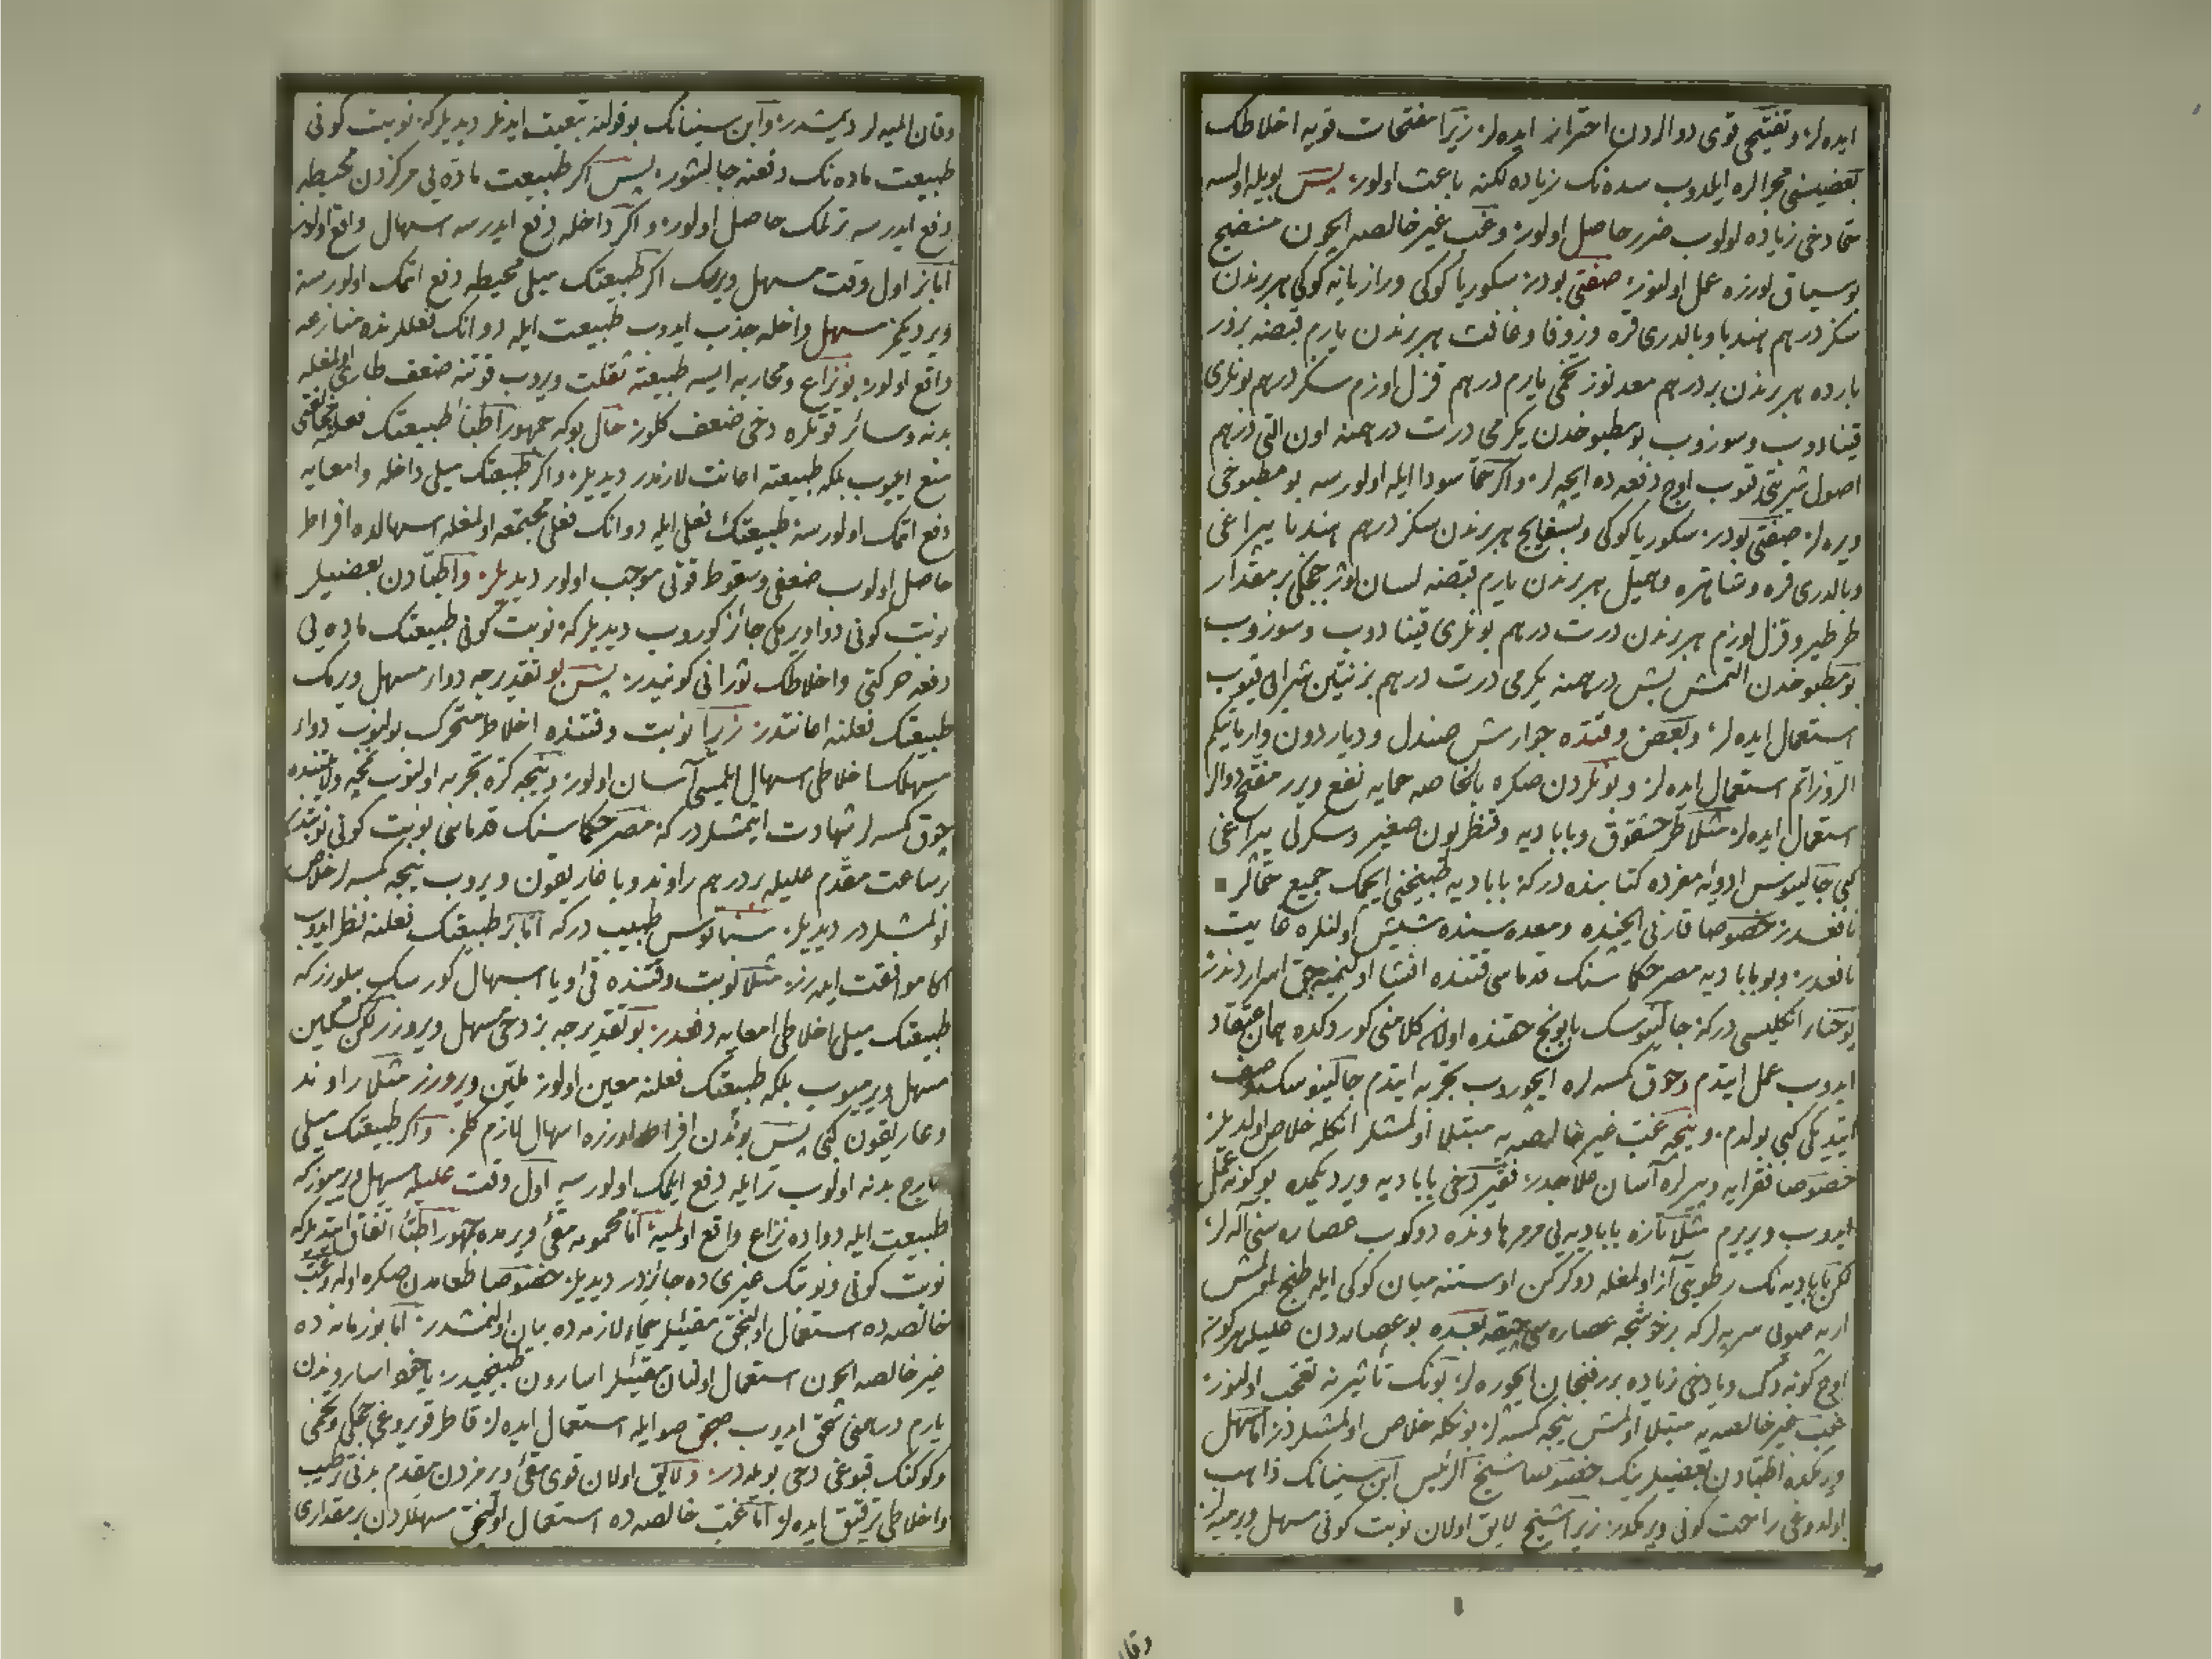 ايده لر و تفتيحى قوى دوالردن احتراز ايده لر زيرا مفتحات قويه اخلاطك
بعضيسنى مجرالره ايلدوب سده نك زياده لكنه باعث اولور پس بويله اولسه
حما دخى زياده اولوب ضرر حاصل اولور و غب غير خالصه ايچون منضج
بو سياق اوزره عمل اولنور صفتى بودر سكوريا كوكى و رازيانه كوكى هر برندن
سكز درهم هندبا و بالدرى قره و زوفا و غافت هر برندن يارم قبضه بزور
بارده هر برندن بر درهم معدنوز تخمى يارم درهم قزل اوزم سكز درهم بونلرى
قينادوب و سوزوب بو مطبوخدن يكرمى درت درهمنه اون التى درهم
اصول شربتى قيوب اوچ دفعه ده ايچه لر و اكر حما سودا ايله اولورسه بو مطبوخى
ويره لر صفتى بودر سكوريا كوكى و بسفايج هر برندن سكز درهم هندبا يپراغى
و بالدرى قره و شاهتره هر برندن يارم قبضه لسان ثور چچكى بر مقدار
طرطير و قزل اوزم هر برندن درت درهم بونلرى قينادوب و سوزوب
بو مطبوخدن التمش بش درهمنه يكرمى درت درهم بزنتين شرابى قيوب
استعمال ايده لر و بعض وقتده جوارش صندل و ديار دون
استعمال ايده لر و بونلردن صكره بالخاصه حمايه نفع ويرر مفتح دوالر
استعمال ايده لر مثلا طرخشقوق و بابا ديه و قنطريون صغير و سكرلى يپراغى
كبى جالينوس ادويه مفرده كتابنده دركه بابا ديه طبيخنى ايچمك جميع حمالره
نافعدر خصوصا قارنى ايچنده و معده سنده شيش اولنلره غايت
نافعدر و بو بابا ديه مصر حكماسنك قدماسى قتنده افشا اولنميه جق اسراردندر
يوحنا انكليسى دركه جالينوسك بابونج حقنده اولان كلامنى كوردكده همان اعتقاد
ايدوب عمل ايتدم و چوق كمسه لره ايچوروب تجربه ايتدم جالينوسك وصف
ايتديكى كبى بولدم و نيجه غب غير خالصه يه مبتلا اولمشلر انكله خلاص اولديلر
خصوصا فقرايه و پيرلره آسان علاجدر فقير دخى بابا ديه ويرديكمده بو كونه عمل
ايدوب ويريرم مثلا تازه بابا ديه يى مرمر هاونده دوكوب عصاره سنى آله لر
لكن بابا ديه نك رطوبتى آز اولمغله دوكركن اوستنه ميان كوكى ايله طبخ اولمش
ارپه صويى سرپه لر كه خوشجه عصاره سى چيقه بعده بو عصاره دن عليله هر كون
اوچ كونه دك و يا دخى زياده برر فنجان ايچوره لر بونك تأثيرنه تعجب اولنور
غب غير خالصه يه مبتلا اولمش نيجه كمسه لر بونكله خلاص اولمشلردر اما مسهل
ويرمكده اطبادن بعضيلرينك خصوصا شيخ الرئيس ابن سينانك ذاهب
اولدوغى راحت كونى ويرمكدر زيرا شيخ لايق اولان نوبت كونى مسهل ويرميه لر
وقان
وقان الميه لر ديمشدر و ابن سينانك بو قولنه تبعيت ايدنلر ديديلر كه نوبت كونى
طبيعت ماده نك دفعنه چالشور پس اكر طبيعت ماده يى مركزدن محيطه
دفع ايدرسه ترلمك حاصل اولور و اكر داخله دفع ايدرسه اسهال واقع اولور
اما بز اول وقت مسهل ويرمك اكر طبيعتك ميلى محيطه دفع اتمك اولورسه
ويرديكمز مسهل داخله جذب ايدوب طبيعت ايله دوانك فعللرنده منازعه
واقع اولور بو نزاع و محاربه ايسه طبيعته ثقلت ويروب قوتنه ضعف طارى اولمغله
بدنه و سائر قوتلره دخى ضعف كلور حال بو كه جمهور اطبا طبيعتك فعلنه مخالفتى
منع ايدوب بلكه طبيعته اعانت لازمدر ديديلر و اكر طبيعتك ميلى داخله و امعايه
دفع اتمك اولورسه طبيعتك فعلى ايله دوانك فعلى مجتمعه اولمغله اسهالده افراط
حاصل اولوب ضعفى و سقوط قوتى موجب اولور ديديلر و اطبادن بعضيلر
نوبت كونى دوا ويرمكى جائز كوروب ديديلر كه نوبت كونى طبيعتك ماده يى
دفعه حركتى و اخلاطك ثورانى كونيدر پس بو تقديرجه دواء مسهل ويرمك
طبيعتك فعلنه اعانتدر زيرا نوبت وقتنده اخلاط متحرك بولنوب دواء
مسهلك اخلاطى اسهال ايلمسى آسان اولور و نيجه كره تجربه اولنوب نيجه
چوق كمسه لر شهادت ايتمشلردر كه مصر حكماسنك قدماسى نوبت كونى نوبتدن
بر ساعت مقدم عليله بر درهم راوند و يا غاريقون ويروب نيجه كمسه لر خلاص
بولمشلردر ديديلر طبيب دركه اما بز طبيعتك فعلنه نظر ايدوب
اكا موافقت ايدرز مثلا نوبت وقتنده قئ و يا اسهال كورسك بيلورز كه
طبيعتك ميلى اخلاطى امعايه دفعدر بو تقديرجه بز دخى مسهل ويرورز لكن
مسهل ويرميوب بلكه طبيعتك فعلنه معين اولور ملين ويرورز مثلا راوند
و غاريقون كبى پس بوندن افراط اوزره اسهال لازم كلمز و اكر طبيعتك ميلى
خارج بدنه اولوب تر ايله دفع ايلمك اولورسه اول وقت عليله مسهل ويرمزز كه
طبيعت ايله دواده نزاع واقع اولميه اما محمومه مقئ ويرمده جمهور اطبا اتفاق ايتديلر كه
نوبت كونى و نوبتك غيرى ده جائزدر ديديلر خصوصا طعامدن صكره اوله و غب
خالصه ده استعمال اولنجق مقيئلر حماء لازمه ده بيان اولنمشدر اما بو زمانه ده
غير خالصه ايچون استعمال اولنان مقيئلر اسارون طبيخيدر ياخود اسارون
يارم درهمنى سحق ايدوب صجق صو ايله استعمال ايده لر قاطر قويروغى چچكى و تخمى
و كوكنك قبوغى دخى بويله در و لايق اولان قوى مقئ ويرمزدن مقدم بدنى ترطيب
و اخلاطى ترقيق ايده لر اما غب خالصه ده استعمال اولنجق مسهللردن بر مقدارى